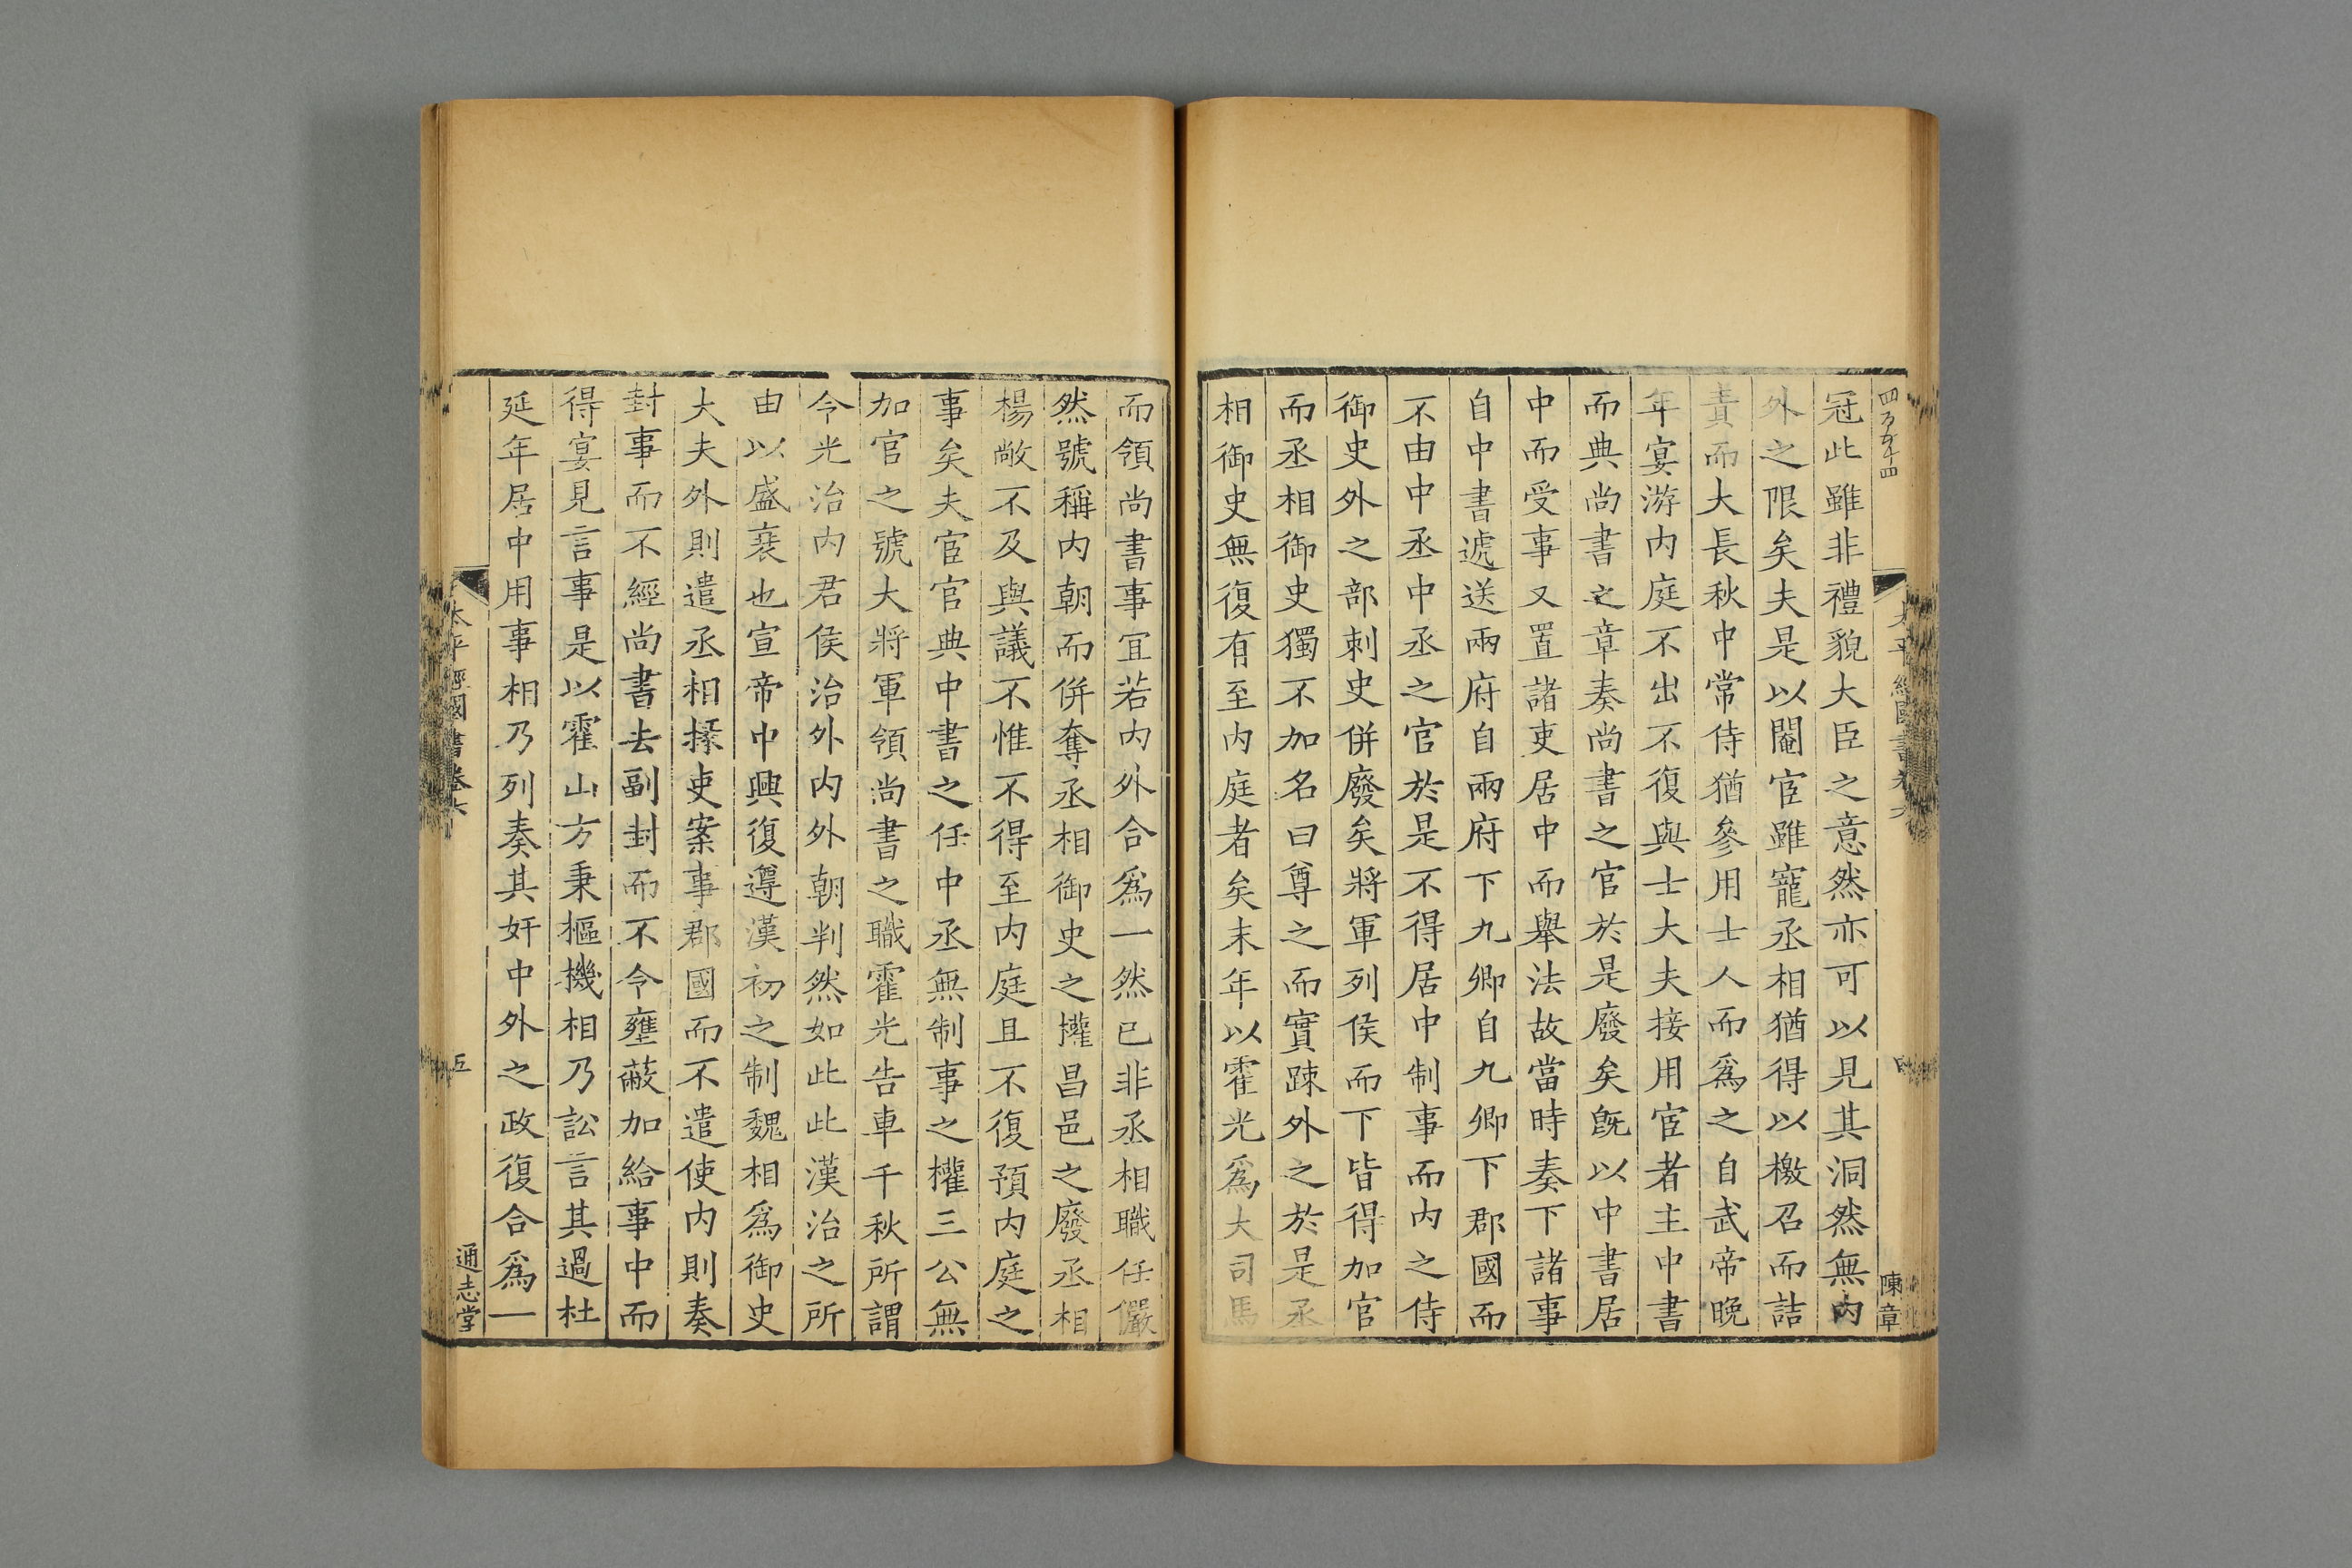 冠此雖非禮貌大臣之意然亦可以見其洞然無內
外之限矣夫是以閹宦雖寵丞相猶得以檄召而詰
責而大長秋中常侍猶參用士人而爲之自武帝晚
年宴游内庭不出不復與士大夫接用宦者主中書
而典尚書之章奏尚書之官於是廢矣旣以中書居
中而受事又置諸吏居中而舉法故當時奏下諸事
自中書遞送兩府自兩府下九卿自九卿下郡國而
不由中丞中丞之官於是不得居中制事而内之侍
御史外之部刺史併廢矣將軍列侯而下皆得加官
而丞相御史獨不加名曰尊之而實踈外之於是丞
相御史無復有至内庭者矣末年以霍光爲大司馬
陳章
而領尚書事冝若内外合爲一然已非丞相職任儼
然號稱内朝而併奪丞相御史之權昌邑之廢丞相
楊敞不及與議不惟不得至内庭且不復預内庭之
事矣夫宦官典中書之任中丞無制事之權三公無
加官之號大將軍領尚書之職霍光告車千秋所謂
今光治内君侯治外内外朝判然如此此漢治之所
由以盛衰也宣帝中興復遵漢初之制魏相爲御史
大夫外則遣丞相掾吏案事郡國而不遣使内則奏
封事而不經尚書去副封而不令壅蔽加給事中而
得宴見言事是以霍山方秉樞機相乃訟言其過杜
延年居中用事相乃列奏其奸中外之政復合爲一
太平經國書卷六
五
通志堂